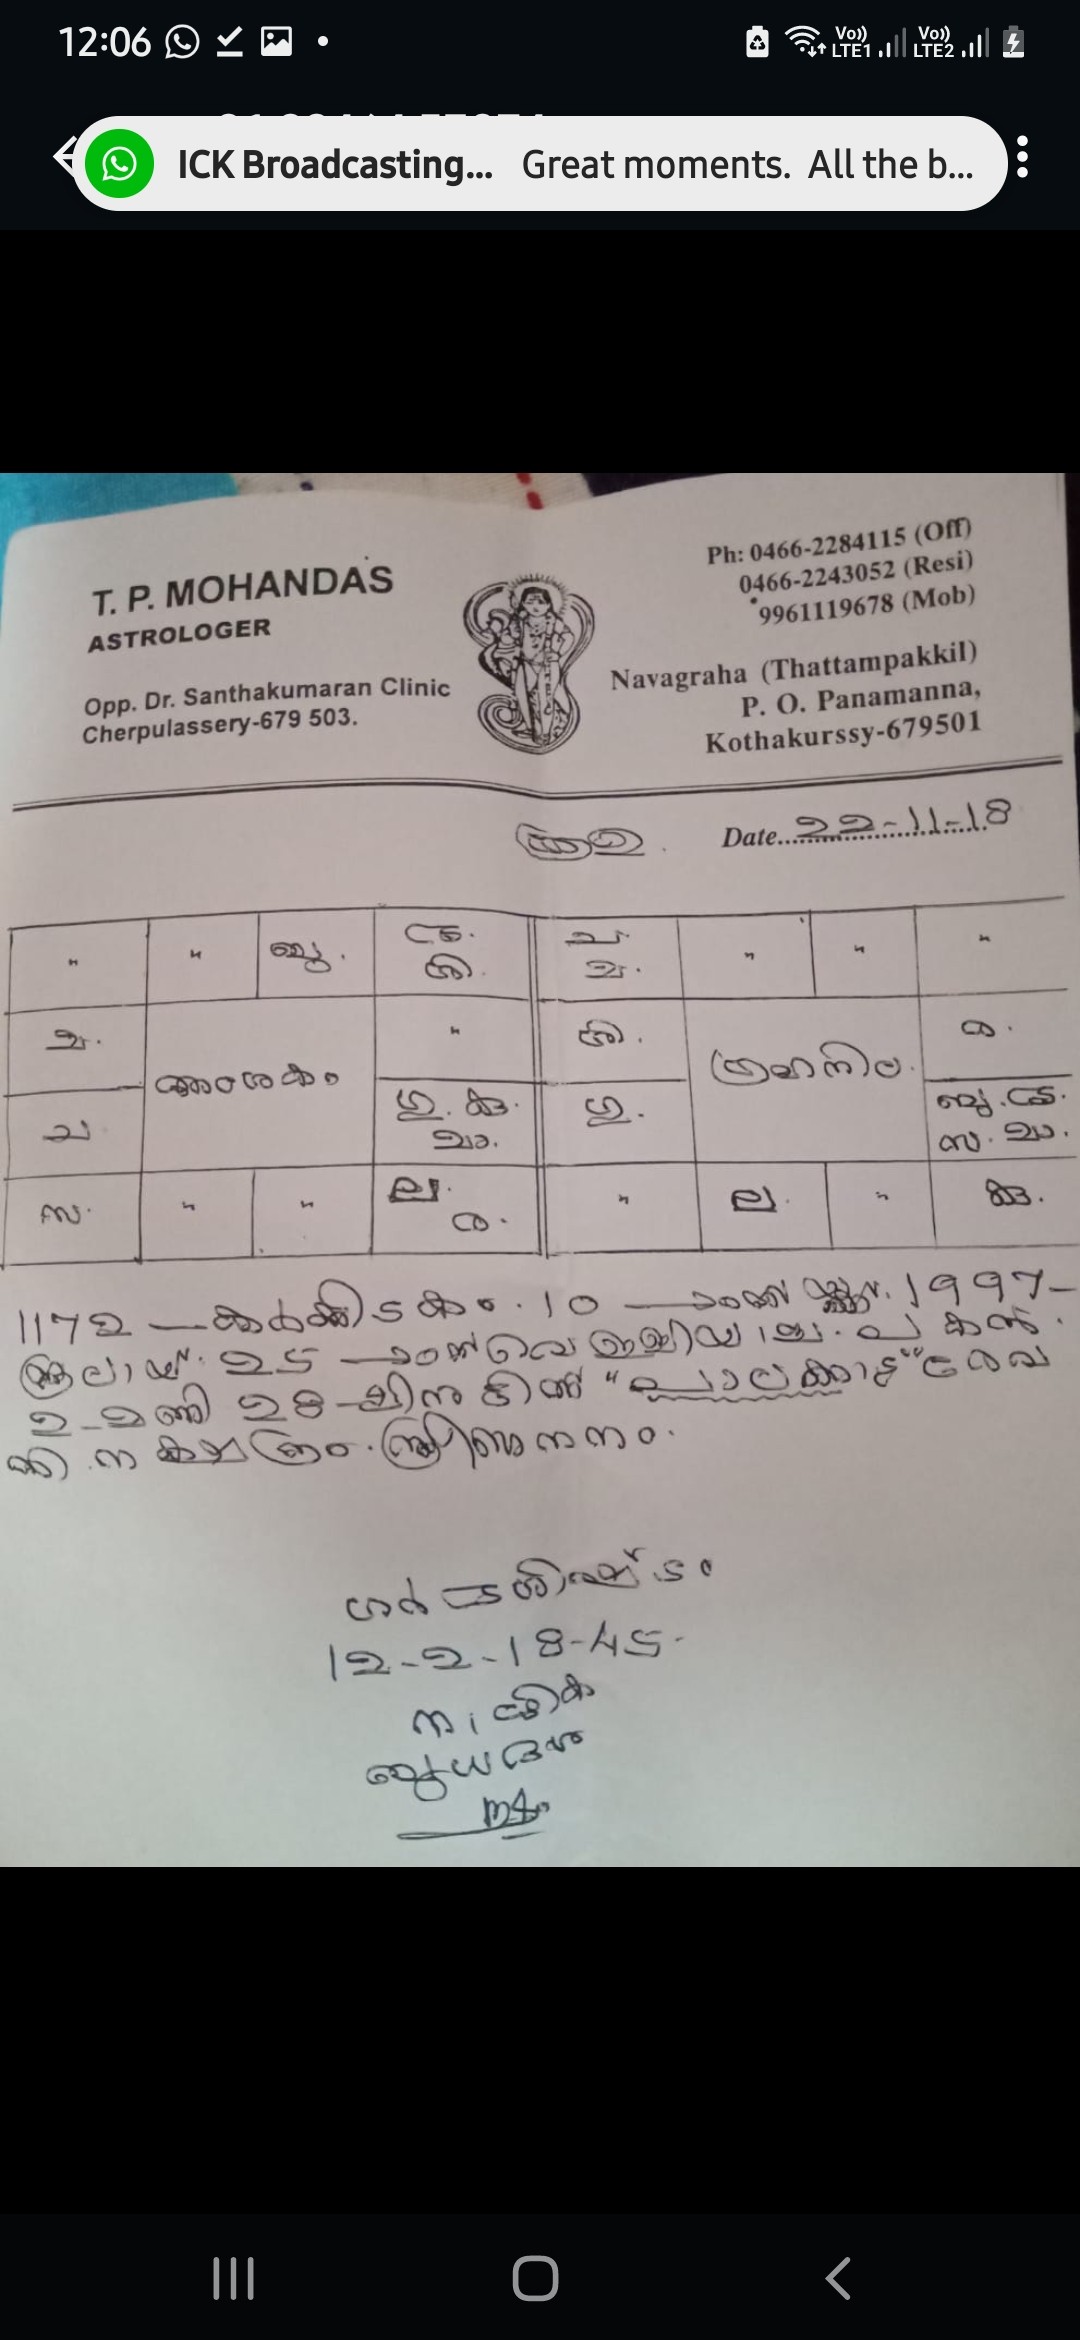 12:06
Vo)) LTE1 Vo)) LTE2
ICK Broadcasting... Great moments. All the b...
T. P. MOHANDAS
ASTROLOGER
Opp. Dr. Santhakumaran Clinic
Cherpulassery-679 503.
Ph: 0466-2284115 (Off)
0466-2243052 (Resi)
9961119678 (Mob)
Navagraha (Thattampakkil)
P. O. Panamanna,
Kothakurssy-679501
Date 22-11-18
" " ബു.
ച.
അംശകം
"
ഗു. കു.
മാ.
സ. " " ല.
ര.
" " "
ശി.
ഗ്രഹനില
ര.
ഗു.
ബു.
സ. മാ.
" ല " കു.
1172 കർക്കിടകം. 10 1997
ജൂലായ്. 25 വെള്ളിയാഴ്ച. പകൽ.
2 മണി 28 മിനുട്ടിന് "പാലക്കാട്" രേവ
തി നക്ഷത്രം. സ്ത്രീജനനം.
ഗർഭശിഷ്ടം
12-2-18-45
ബുധദശ